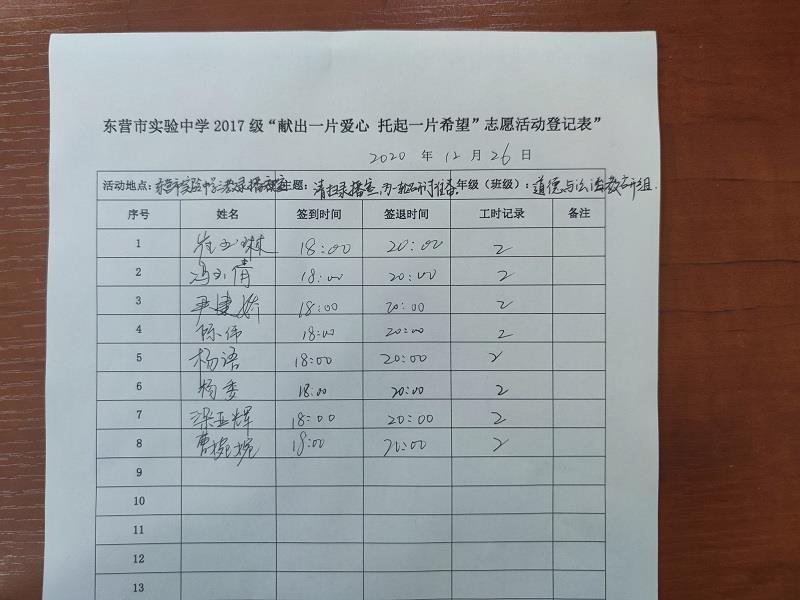 东营市实验中学 2017 级“献出一片爱心 托起一片希望”志愿活动登记表”
2020 年 12 月 26 日
活动地点：东营市实验中学 录播教室 主题：清扫录播室 年级（班级）：道德与法治教研组
序号 姓名 签到时间 签退时间 工时记录 备注
1 崔玉琳 18:00 20:00 2
2 冯玉倩 18:00 20:00 2
3 尹建娇 18:00 20:00 2
4 陈伟 18:00 20:00 2
5 杨语 18:00 20:00 2
6 杨委 18:00 20:00 2
7 梁亚辉 18:00 20:00 2
8 曹婉婉 18:00 20:00 2
9
10
11
12
13